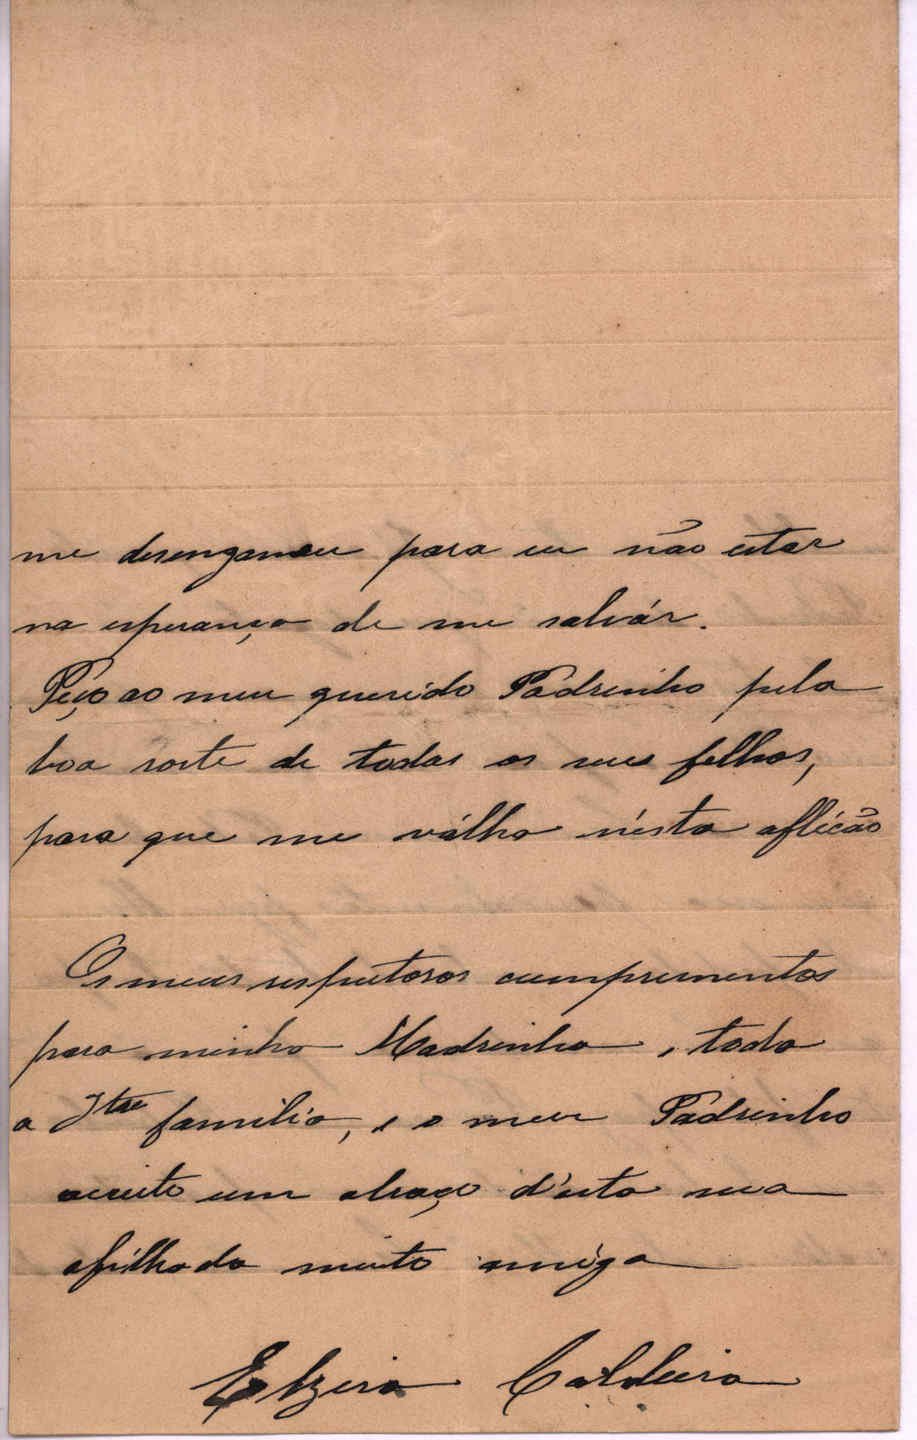 me desenganou para eu não estar
na esperança de me salvár.
Peço ao meu querido Padrinho pela
boa sorte de todos os seus filhos,
para que me válha n'ésta aflicão
Os meus respeitosos cumprimentos
para minha Madrinha, toda
a Jtre familia, e o meu Padrinho
aceite um abraço d'esta sua
afilhada muito amiga
Elzira Caldeira